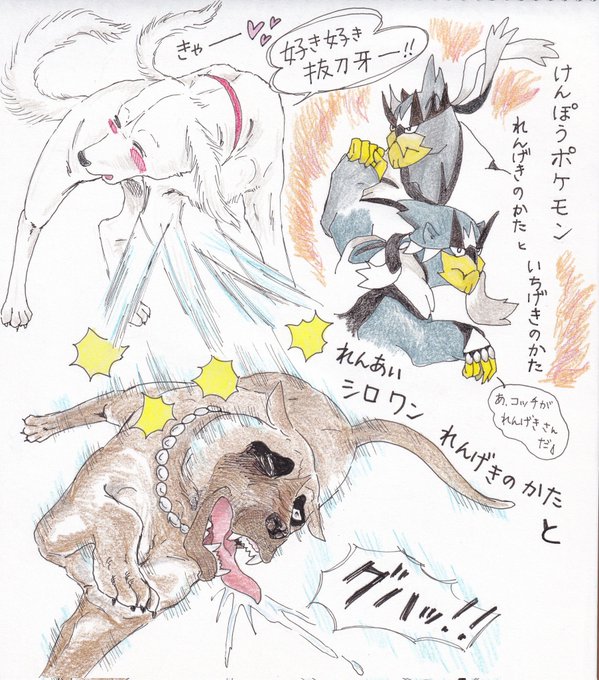 けんぽうポケモン
れんげきのかたと
いちげきのかた
好き好き
抜刀牙ー!!
きゃー
あ、コッチが
れんげきさん
だ
れんあい
シロワン
れんげきのかた
と
グハッ!!